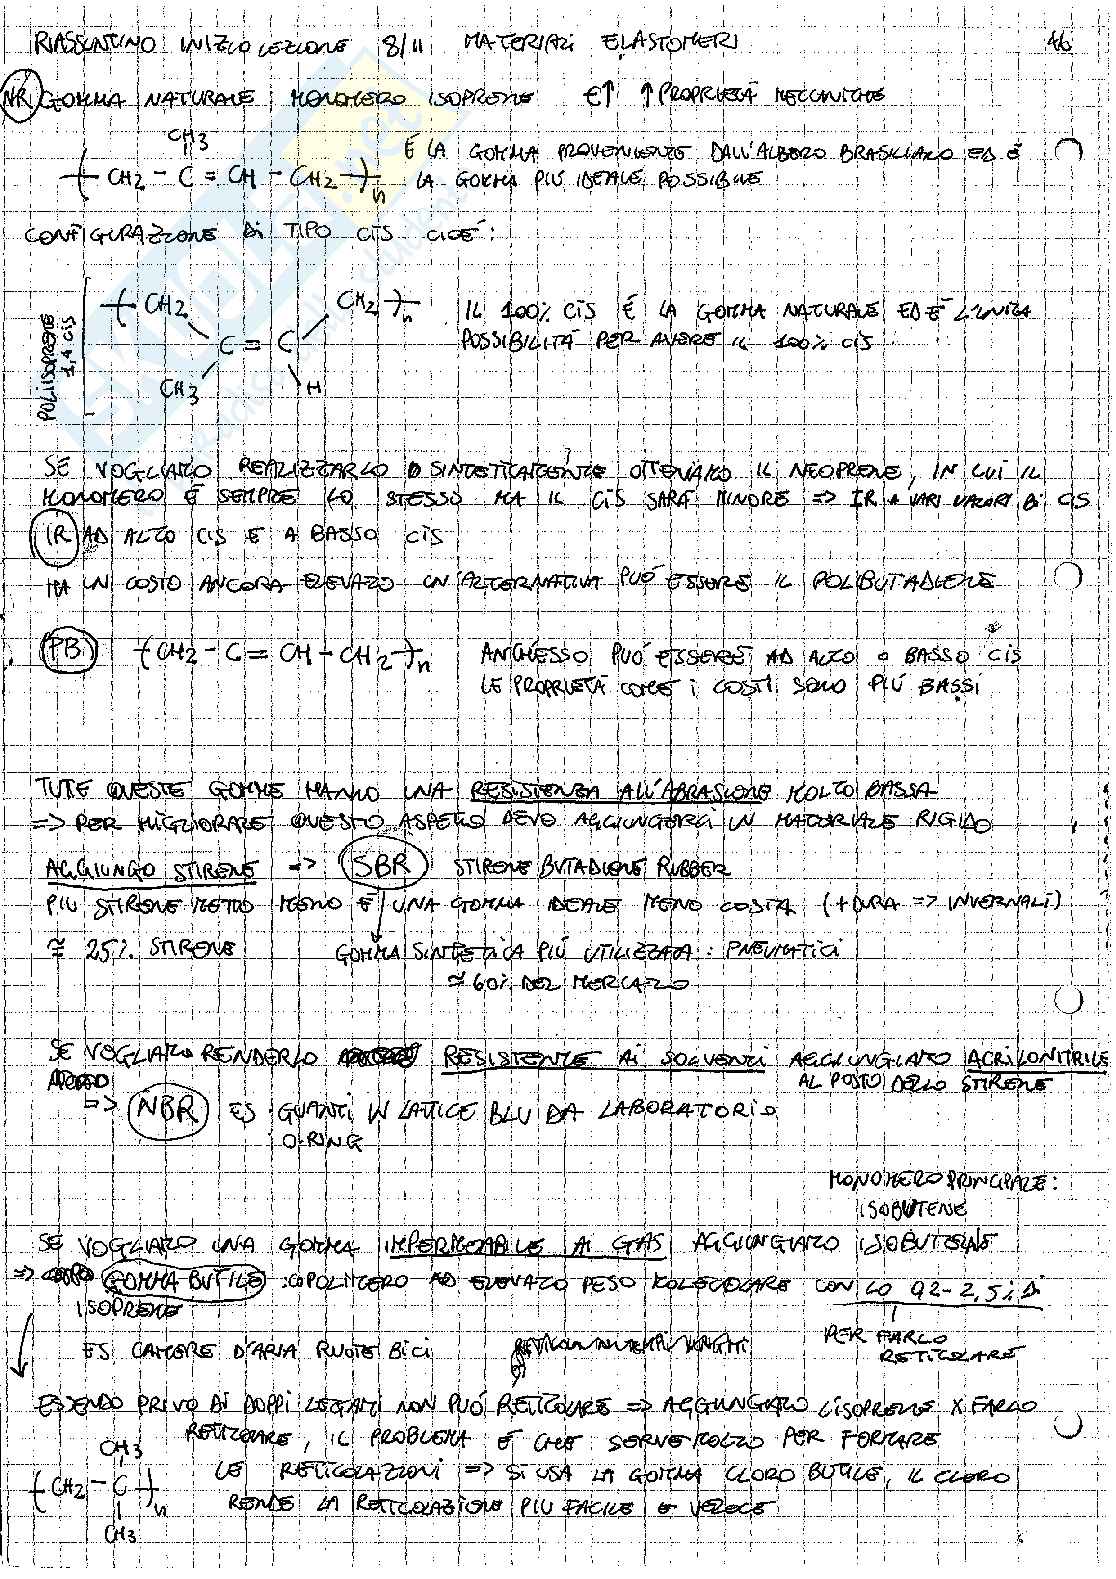 RIASSUNTINO INIZIO LEZIONE 8/11 MATERIALI ELASTOMERI 46
NR GOMMA NATURALE, MONOMERO ISOPRENE €↑ ↑PROPRIETÀ MECCANICHE
CH3
( CH2 - C = CH - CH2 )n
È LA GOMMA PROVENIENTE DALL'ALBERO BRASILIANO ED È
LA GOMMA PIÙ IDEALE POSSIBILE
CONFIGURAZIONE DI TIPO CIS CIOÈ:
POLIISOPRENE 1,4 CIS
( CH2 CH2 )n
C = C
CH3 H
IL 100% CIS È LA GOMMA NATURALE ED È L'UNICA
POSSIBILITÀ PER AVERE IL 100% CIS
SE VOGLIAMO REALIZZARLO SINTETICAMENTE OTTENIAMO IL NEOPRENE, IN CUI IL
MONOMERO È SEMPRE LO STESSO MA IL CIS SARÀ MINORE => IR A VARI VALORI DI CIS
IR AD ALTO CIS E A BASSO CIS
HA UN COSTO ANCORA ELEVATO UN'ALTERNATIVA PUÒ ESSERE IL POLIBUTADIENE
PB ( CH2 - C = CH - CH2 )n
ANCH'ESSO PUÒ ESSERE AD ALTO O BASSO CIS
LE PROPRIETÀ COME I COSTI SONO PIÙ BASSI
TUTE QUESTE GOMME HANNO UNA RESISTENZA ALL'ABRASIONE MOLTO BASSA
=> PER MIGLIORARE QUESTO ASPETTO DEVO AGGIUNGERCI UN MATERIALE RIGIDO
AGGIUNGO STIRENE => SBR STIRENE BUTADIENE RUBBER
PIÙ STIRENE METTO MENO È UNA GOMMA IDEALE MENO COSTA (+DURA => INVERNALI)
≅ 25% STIRENE GOMMA SINTETICA PIÙ UTILIZZATA: PNEUMATICI
≈ 60% DEL MERCATO
SE VOGLIAMO RENDERLO RESISTENTE AI SOLVENTI AGGIUNGIAMO ACRILONITRILE
AL POSTO DELLO STIRENE
=> NBR ES GUANTI IN LATTICE BLU DA LABORATORIO
O-RING
MONOMERO PRINCIPALE:
ISOBUTENE
SE VOGLIAMO UNA GOMMA IMPERMEABILE AI GAS AGGIUNGIAMO ISOBUTENE
=> GOMMA BUTILE : COPOLIMERO AD ELEVATO PESO MOLECOLARE CON LO 0,2-2,5% DI
ISOPRENE
PER FARLO
RETICOLARE
ES CAMERE D'ARIA RUOTE BICI
ESSENDO PRIVO DI DOPPI LEGAMI NON PUÒ RETICOLARE => AGGIUNGIAMO L'ISOPRENE X FARLO
RETICOLARE, IL PROBLEMA È CHE SERVE MOLTO PER FORMARE
LE RETICOLAZIONI => SI USA LA GOMMA CLORO BUTILE, IL CLORO
RENDE LA RETICOLAZIONE PIÙ FACILE E VELOCE
CH3
( CH2 - C )n
CH3